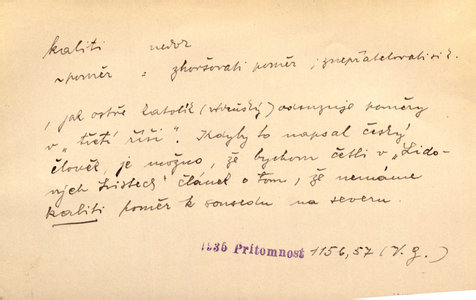 kaliti nedok
~ poměr = zhoršovati poměr, znepřátelovati si k.
, jak ostře katolík (vídeňský) odsuzuje poměry
v „třetí říši“. Kdyby to napsal český
člověk, je možno, že bychom četli v „Lido-
vých Listech“ článek o tom, že nemáme
kaliti poměr k sousedu na severu.
1936 Přítomnost 1156,57 (V. g.)